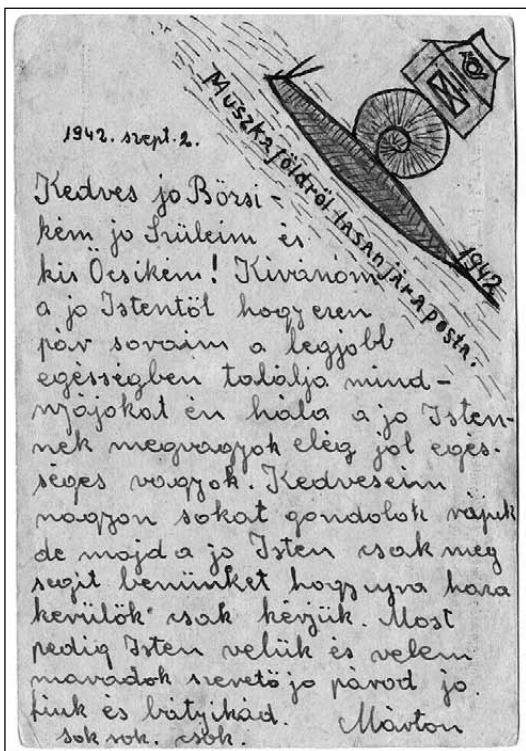 Muszkaföldröl lasan jár a posta.
1942
1942. szept. 2.
Kedves jo Börsi-
kém jo Szüleim és
kis Öcsikém! Kivánom
a jo Istentöl hogy ezen
pár soraim a legjobb
egésségben találja mind-
nyájokat én hála a jo Isten-
nek megvagyok elég jol egés-
séges vagyok. Kedveseim
nagyon sokat gondolok rájuk
de majd a jo Isten csak meg
segit benünket hogy ujra haza
kerülök csak kérjük. Most
pedig Isten velük és velem
maradok szeretö jo párod jo
fiuk és bátyikád. Márton
sok sok. csók.